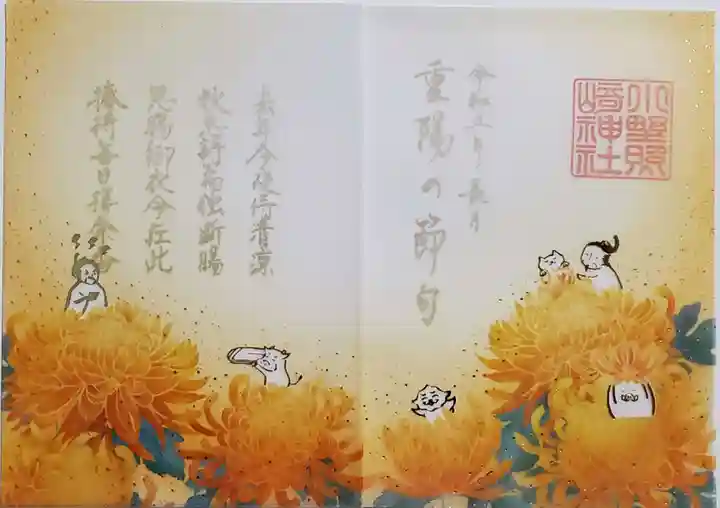 小野照
崎神社
令和年長月
重陽の節句
去年今夜侍清涼
秋思詩篇独断腸
恩賜御衣今在此
捧持毎日拝余香